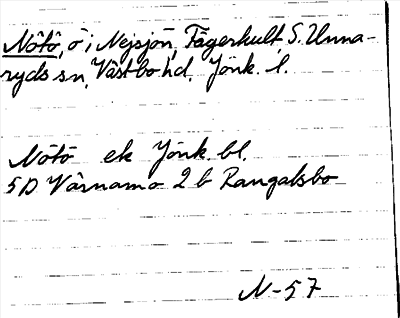 Nötö, ö i Nejsjön, Fägerhult, S. Unna-
ryds sn, Västbo hd, Jönk. l.
Nötö ek Jönk. bl.
5D Värnamo 2 b Rangelsbo
N-57